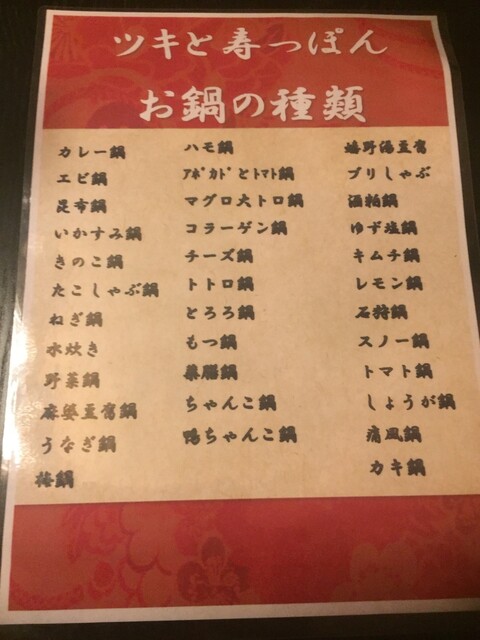 ツキと寿っぽん
お鍋の種類
カレー鍋
エビ鍋
昆布鍋
いかすみ鍋
きのこ鍋
たこしゃぶ鍋
ねぎ鍋
水炊き
野菜鍋
麻婆豆腐鍋
うなぎ鍋
梅鍋
ハモ鍋
ｱﾎﾞｶﾄﾞとﾄﾏﾄ鍋
マグロ大トロ鍋
コラーゲン鍋
チーズ鍋
トトロ鍋
とろろ鍋
もつ鍋
薬膳鍋
ちゃんこ鍋
鴨ちゃんこ鍋
嬉野湯豆腐
ブリしゃぶ
酒粕鍋
ゆず塩鍋
キムチ鍋
レモン鍋
石狩鍋
スノー鍋
トマト鍋
しょうが鍋
痛風鍋
カキ鍋